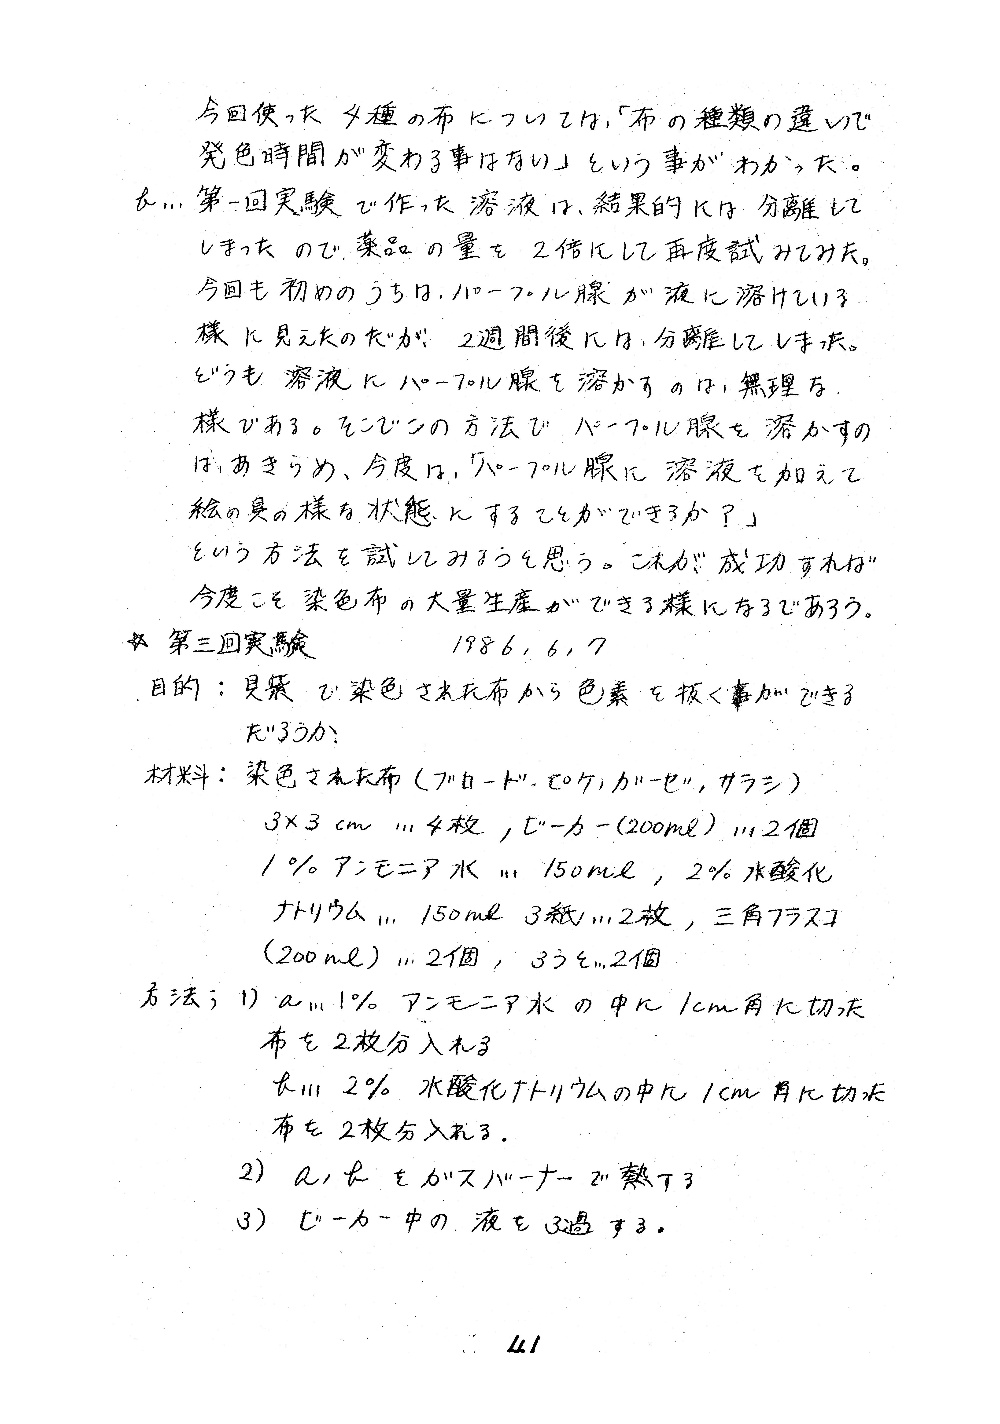 今回使った 4種の布については、「布の種類の違いで
発色時間が変わる事はない」という事がわかった。
b… 第一回実験で作った溶液は、結果的には分離して
しまったので薬品の量を2倍にして再度試みてみた。
今回も初めのうちは、パープル腺が液に溶けている
様に見えたのだが、2週間後には、分離してしまった。
どうも溶液にパープル腺を溶かすのは、無理な
様である。そこでこの方法でパープル腺を溶かすの
は、あきらめ、今度は、「パープル腺に溶液を加えて
絵の具の様な状態にすることができるか?」
という方法を試してみようと思う。これが成功すれば
今度こそ染色布の大量生産ができる様になるであろう。
☆ 第三回実験 1986, 6, 7
目的:貝紫で染色された布から色素を抜く事ができる
だろうか、
材料:染色された布(ブロード、ピケ、ガーゼ、サラシ)
3×3 cm … 4枚, ビーカー(200ml) … 2個
1% アンモニア水 … 150ml, 2% 水酸化
ナトリウム … 150ml 3紙 … 2枚, 三角フラスコ
(200ml) … 2個, 3うと… 2個
方法; 1) a… 1% アンモニア水の中に1cm角に切った
布を2枚分入れる
b… 2% 水酸化ナトリウムの中に1cm角に切った
布を2枚分入れる.
2) a, b をガスバーナーで熱する
3) ビーカー中の液を3過する.
41